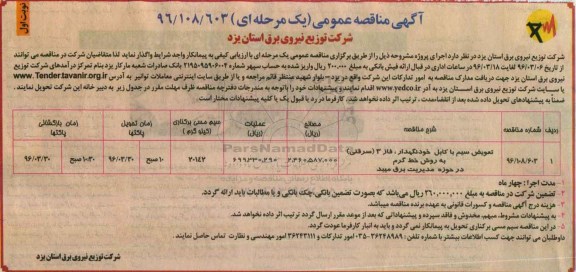 نوبت اول
آگهی مناقصه عمومی (یک مرحله ای) ۹۶/۱۰۸/۶۰۳
شرکت توزیع نیروی برق استان یزد
شرکت توزیع نیروی برق استان یزد در نظر دارد اجرای پروژه مشروحه ذیل را از طریق برگزاری مناقصه عمومی یک مرحله ای با ارزیابی کیفی به پیمانکار واجد شرایط واگذار نماید لذا متقاضیان شرکت در مناقصه می توانند
از تاریخ ۹۶/۰۳/۰۶ لغایت ۹۶/۰۳/۱۸ در ساعات اداری در قبال ارائه فیش بانکی به مبلغ ۲۰۰.۰۰۰ ریال واریز شده به حساب سپهر شماره ۰۲۱۹۵۰۹۵۹۶۰۰۴ بانک صادرات شعبه مارکار یزد بنام تمرکز درآمدهای شرکت توزیع
نیروی برق استان یزد جهت دریافت مدارک مناقصه به امور تدارکات این شرکت واقع در یزد- بلوار شهید منتظر قائم مراجعه و یا از طریق سایت اینترنتی معاملات توانیر به آدرس www.Tender.tavanir.org.ir
یا سایت شرکت توزیع نیروی برق استان یزد به آدرس www.yedco.ir اقدام نمایند و پیشنهادات خود را با توجه به مندرجات دفترچه مناقصه ظرف مهلت مقرر در جدول زیر به دبیر خانه این شرکت تحویل نمایند.
ضمناً به پیشنهادهای تحویل داده شده بعد از انقضاءمدت، ترتیب اثر داده نخواهد شد. کارفرما در رد یا قبول یک یا کلیه پیشنهادات مختار است.
ردیف شماره مناقصه شرح مناقصه مصالح (ریال) عملیات (ریال) سیم مسی برکناری (کیلو گرم) زمان تحویل پاکتها زمان بازگشائی پاکتها
۱ ۹۶/۱۰۸/۶۰۳ تعویض سیم با کابل خودنگهدار ۳ فاز (سرقتی) به روش خط گرم در حوزه مدیریت برق میبد ۱۰ صبح ۹۶/۰۳/۳۰ ۱۰:۳۰ صبح ۹۶/۰۳/۳۰
۱- مدت اجرا: چهار ماه
۲- تضمین شرکت در مناقصه به مبلغ ۳۶۰.۰۰۰.۰۰۰ ریال می‌باشد که بصورت تضمین بانکی، چک بانکی و یا مطالبات باید ارائه گردد.
۳- هزینه درج آگهی مناقصه و کسورات قانونی به عهده برنده مناقصه میباشد.
۴- به پیشنهادات مشروط، مبهم، مخدوش و فاقد سپرده و پیشنهاداتی که بعد از موعد مقرر ارسال گردد ترتیب اثر داده نخواهد شد.
۵- در این مناقصه سیم مسی برکناری تحویل به پیمانکار نمی گردد و باید به انبار کارفرما عودت گردد.
داوطلبان می توانند جهت کسب اطلاعات بیشتر با شماره تلفن: ۳۶۲۴۸۹۸۹-۰۳۵ امور تدارکات و ۳۶۲۴۳۱۱۱ امور مهندسی و نظارت تماس حاصل نمایند.
شرکت توزیع نیروی برق استان یزد